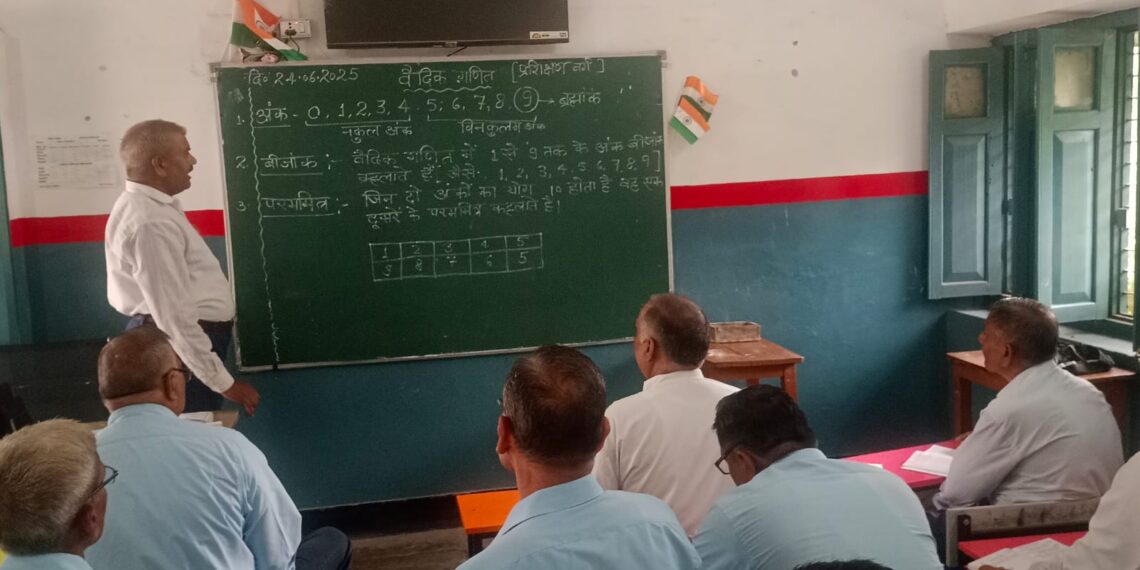 दि० 24.06.2025 वैदिक गणित [प्रशिक्षण वर्ग]
1. अंक - 0, 1, 2, 3, 4, 5, 6, 7, 8, 9 → ब्रह्मांक
नकुल अंक
2. बीजांक :- वैदिक गणित में 1 से 9 तक के अंक बीजांक
कहलाते हैं, जैसे- 1, 2, 3, 4, 5, 6, 7, 8, 9]
3. परममित्र :- जिन दो अंकों का योग 10 होता है वह एक
दूसरे के परममित्र कहलाते है।
1 2 3 4 5
9 8 7 6 5